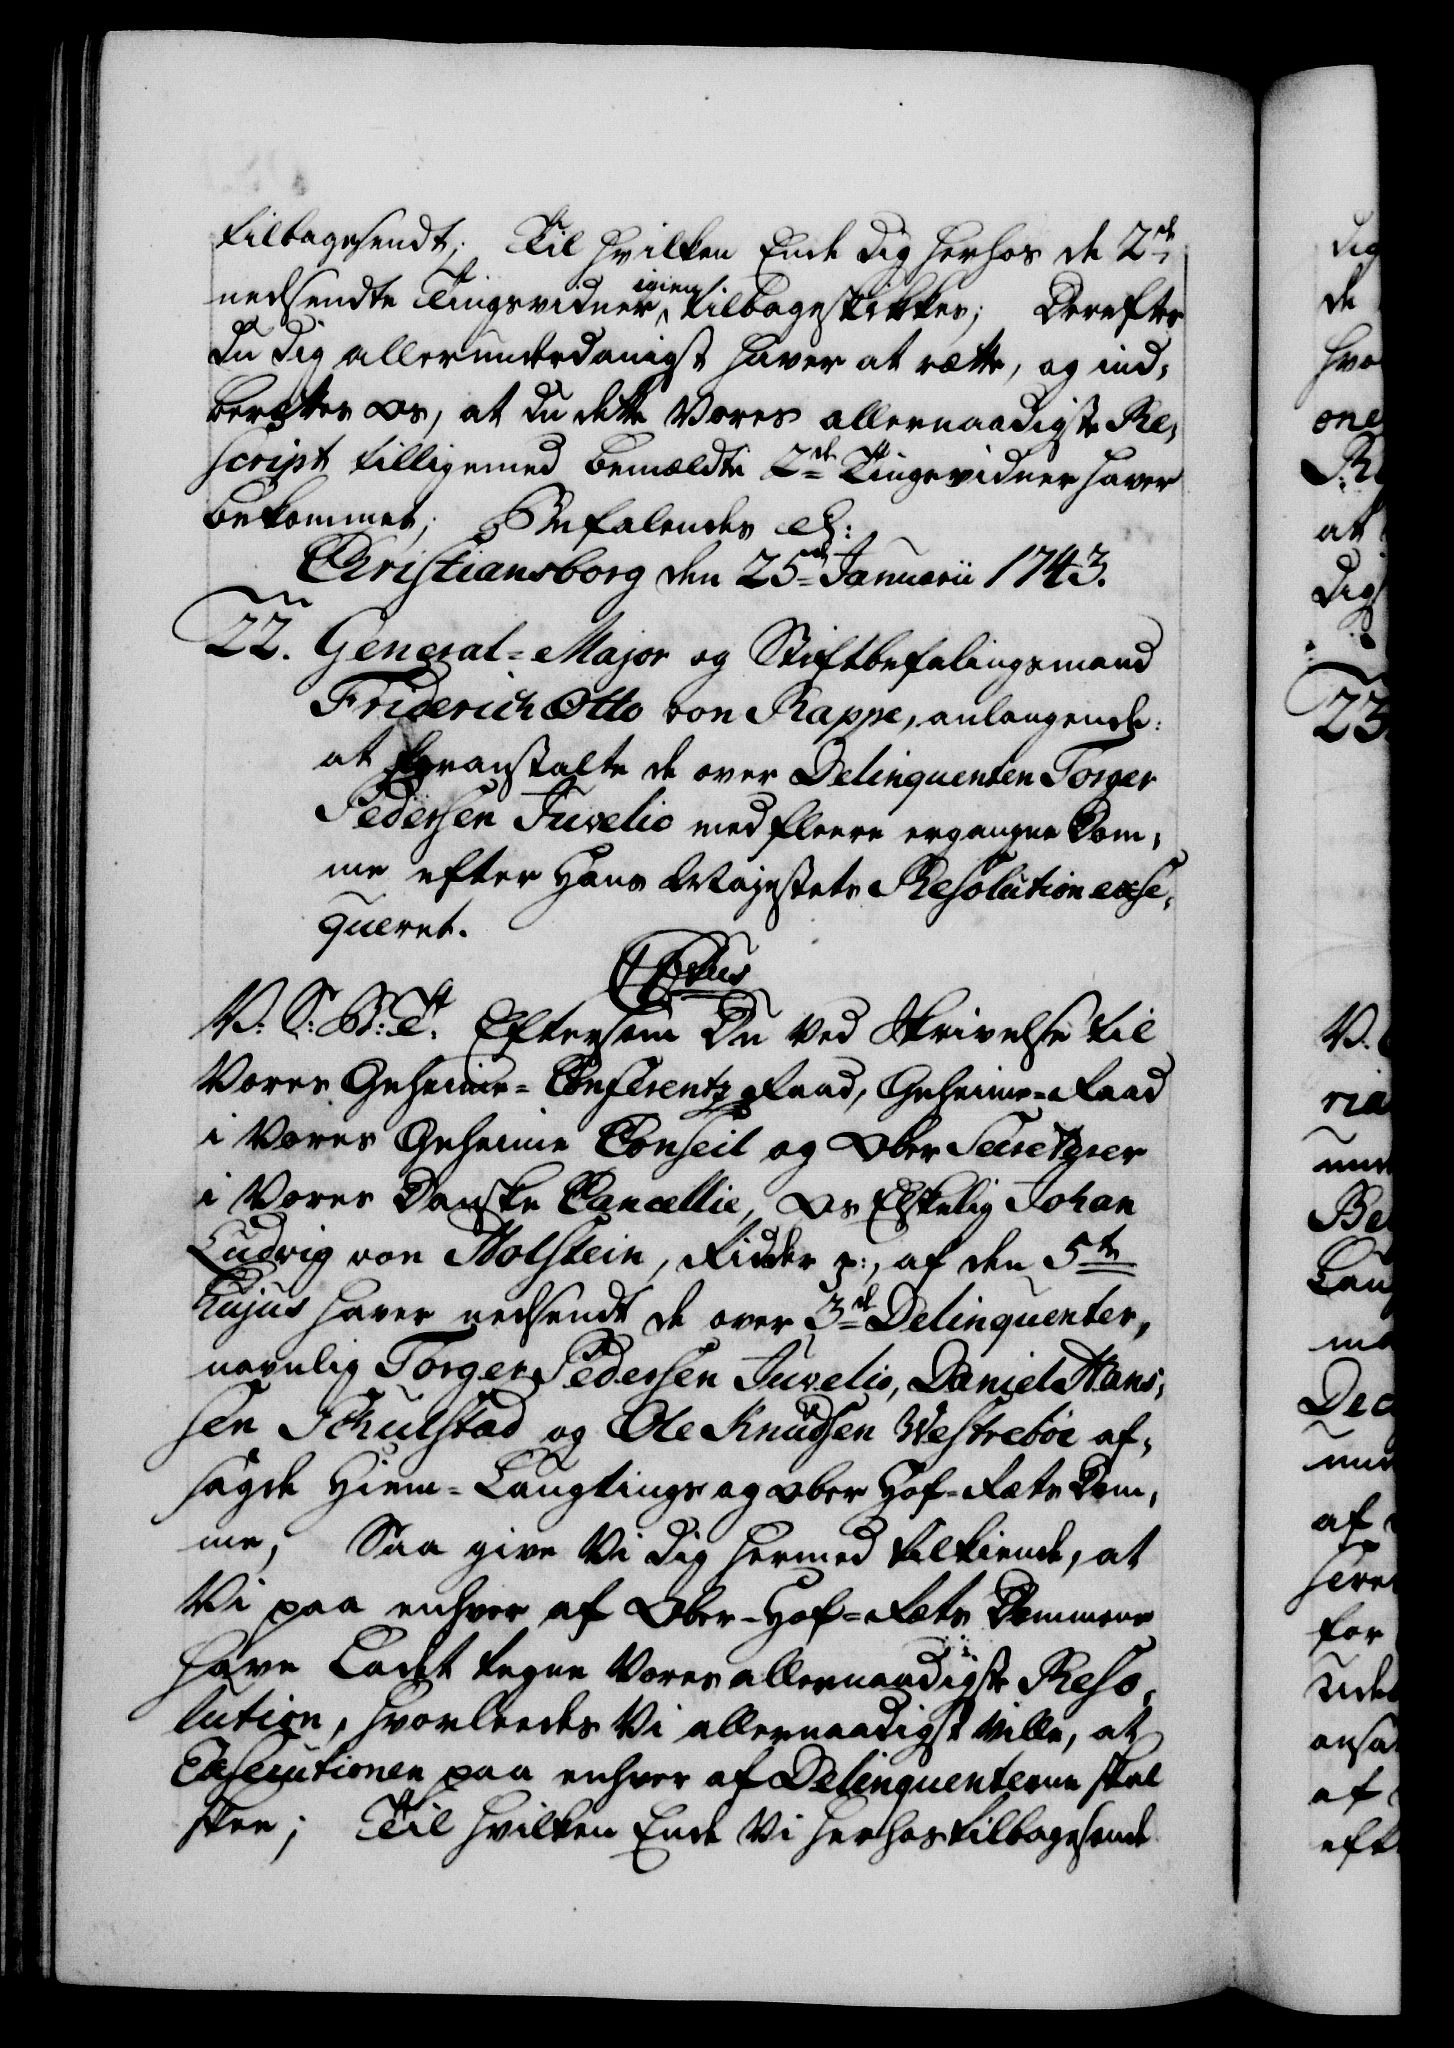 tilbagesendt; Til hvilken Ende dig herhos de 2de
nedsendte Tingsvidner igien tilbageskikkes; Derefter
Du dig allerunderdanigst haver at rette, og ind-
beretter os, at du dette Vores allernaadigste Re-
script tilligemed bemeldte 2de Tingsvidner haver
bekommet; Befalendes etc:
Christiansborg den 25de Januarii 1743.
22. General-Major og Stiftbefalingsmand
Friderich Otto von Rappe, anlangende:
at foranstalte de over Delinquenten Torger
Pedersen Juvelio med fleere ergangne Dom-
me efter Hans Majestets Resolution exse-
queret.
C VIus
V: S: G: T: Eftersom Du ved Skrivelse til
Vores Geheime-Conferentz Raad, Geheime-Raad
i Vores Geheime Conseil og Ober Secreterer
i Vores Danske Cancellie, Os Elskelig Johan
Ludvig von Holstein, Ridder p:, af den 5te
hujus haver nedsendt de over 3de Delinquenter,
navnlig Torger Pedersen Juvelio, Daniel Hans-
sen Schulstad og Ole Knudsen Westrebøe af-
sagde Hiem-Laugtings og Ober Hof-Rets Dom-
me, Saa give Vi dig hermed tilkiende, at
Vi paa enhver af Ober-Hof-Rets Dommene
have Ladet tegne Vores allernaadigste Reso-
lution, hvorleedes Vi allernaadigst ville, at
Exsecutionen paa enhver af Delinquenterne skal
skee; Til hvilken Ende Vi herhos tilbagesende